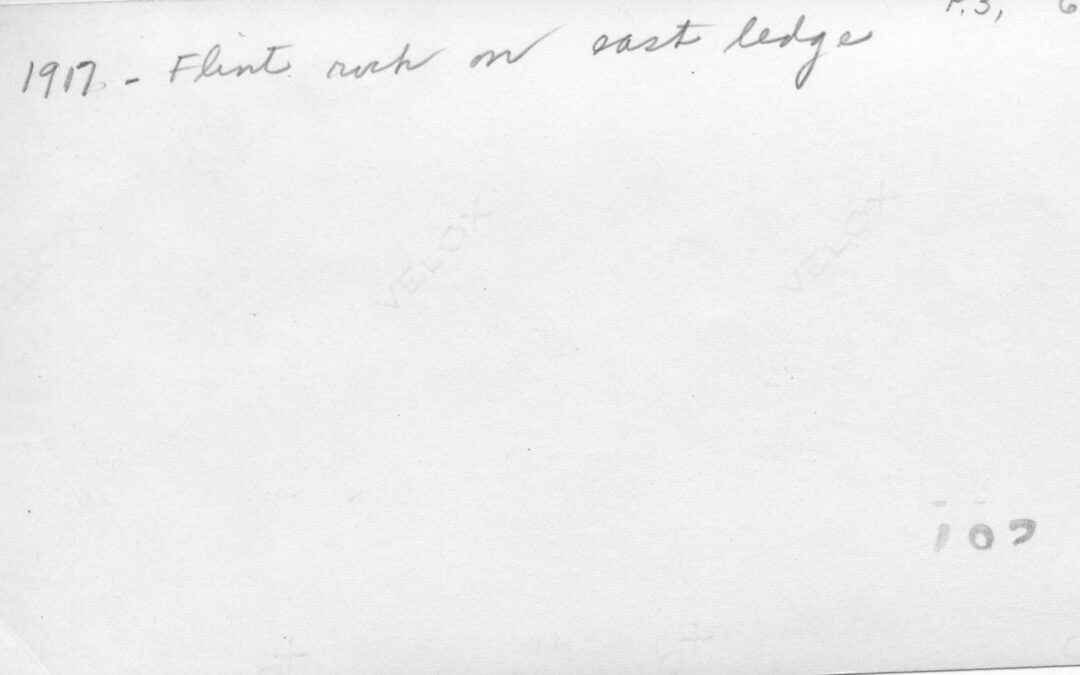 P.3, 6
1917 - Flint rock on east ledge
VELOX VELOX VELOX
10